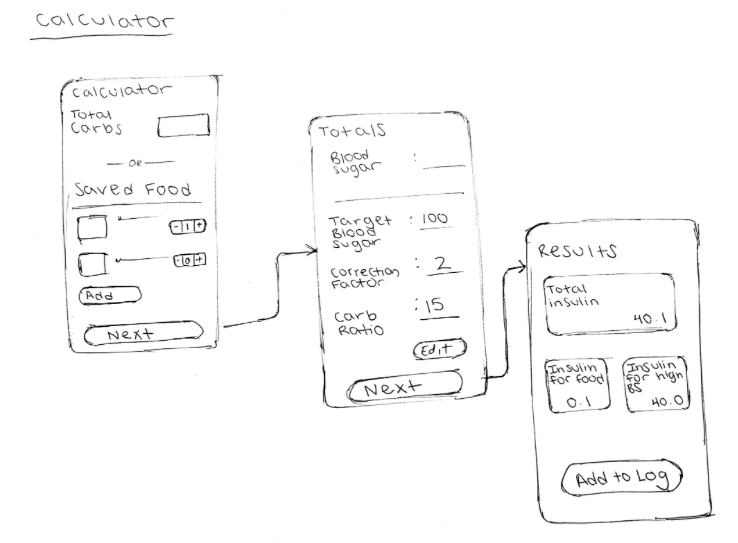 Calculator
Calculator
Total
Carbs
OR
Saved Food
- 1 +
- 0 +
Add
Next
Totals
Blood
sugar :
Target : 100
Blood
sugar
Correction : 2
Factor
Carb : 15
Ratio
Edit
Next
Results
Total
insulin
40.1
Insulin
for food
0.1
Insulin
for high
BS
40.0
Add to Log